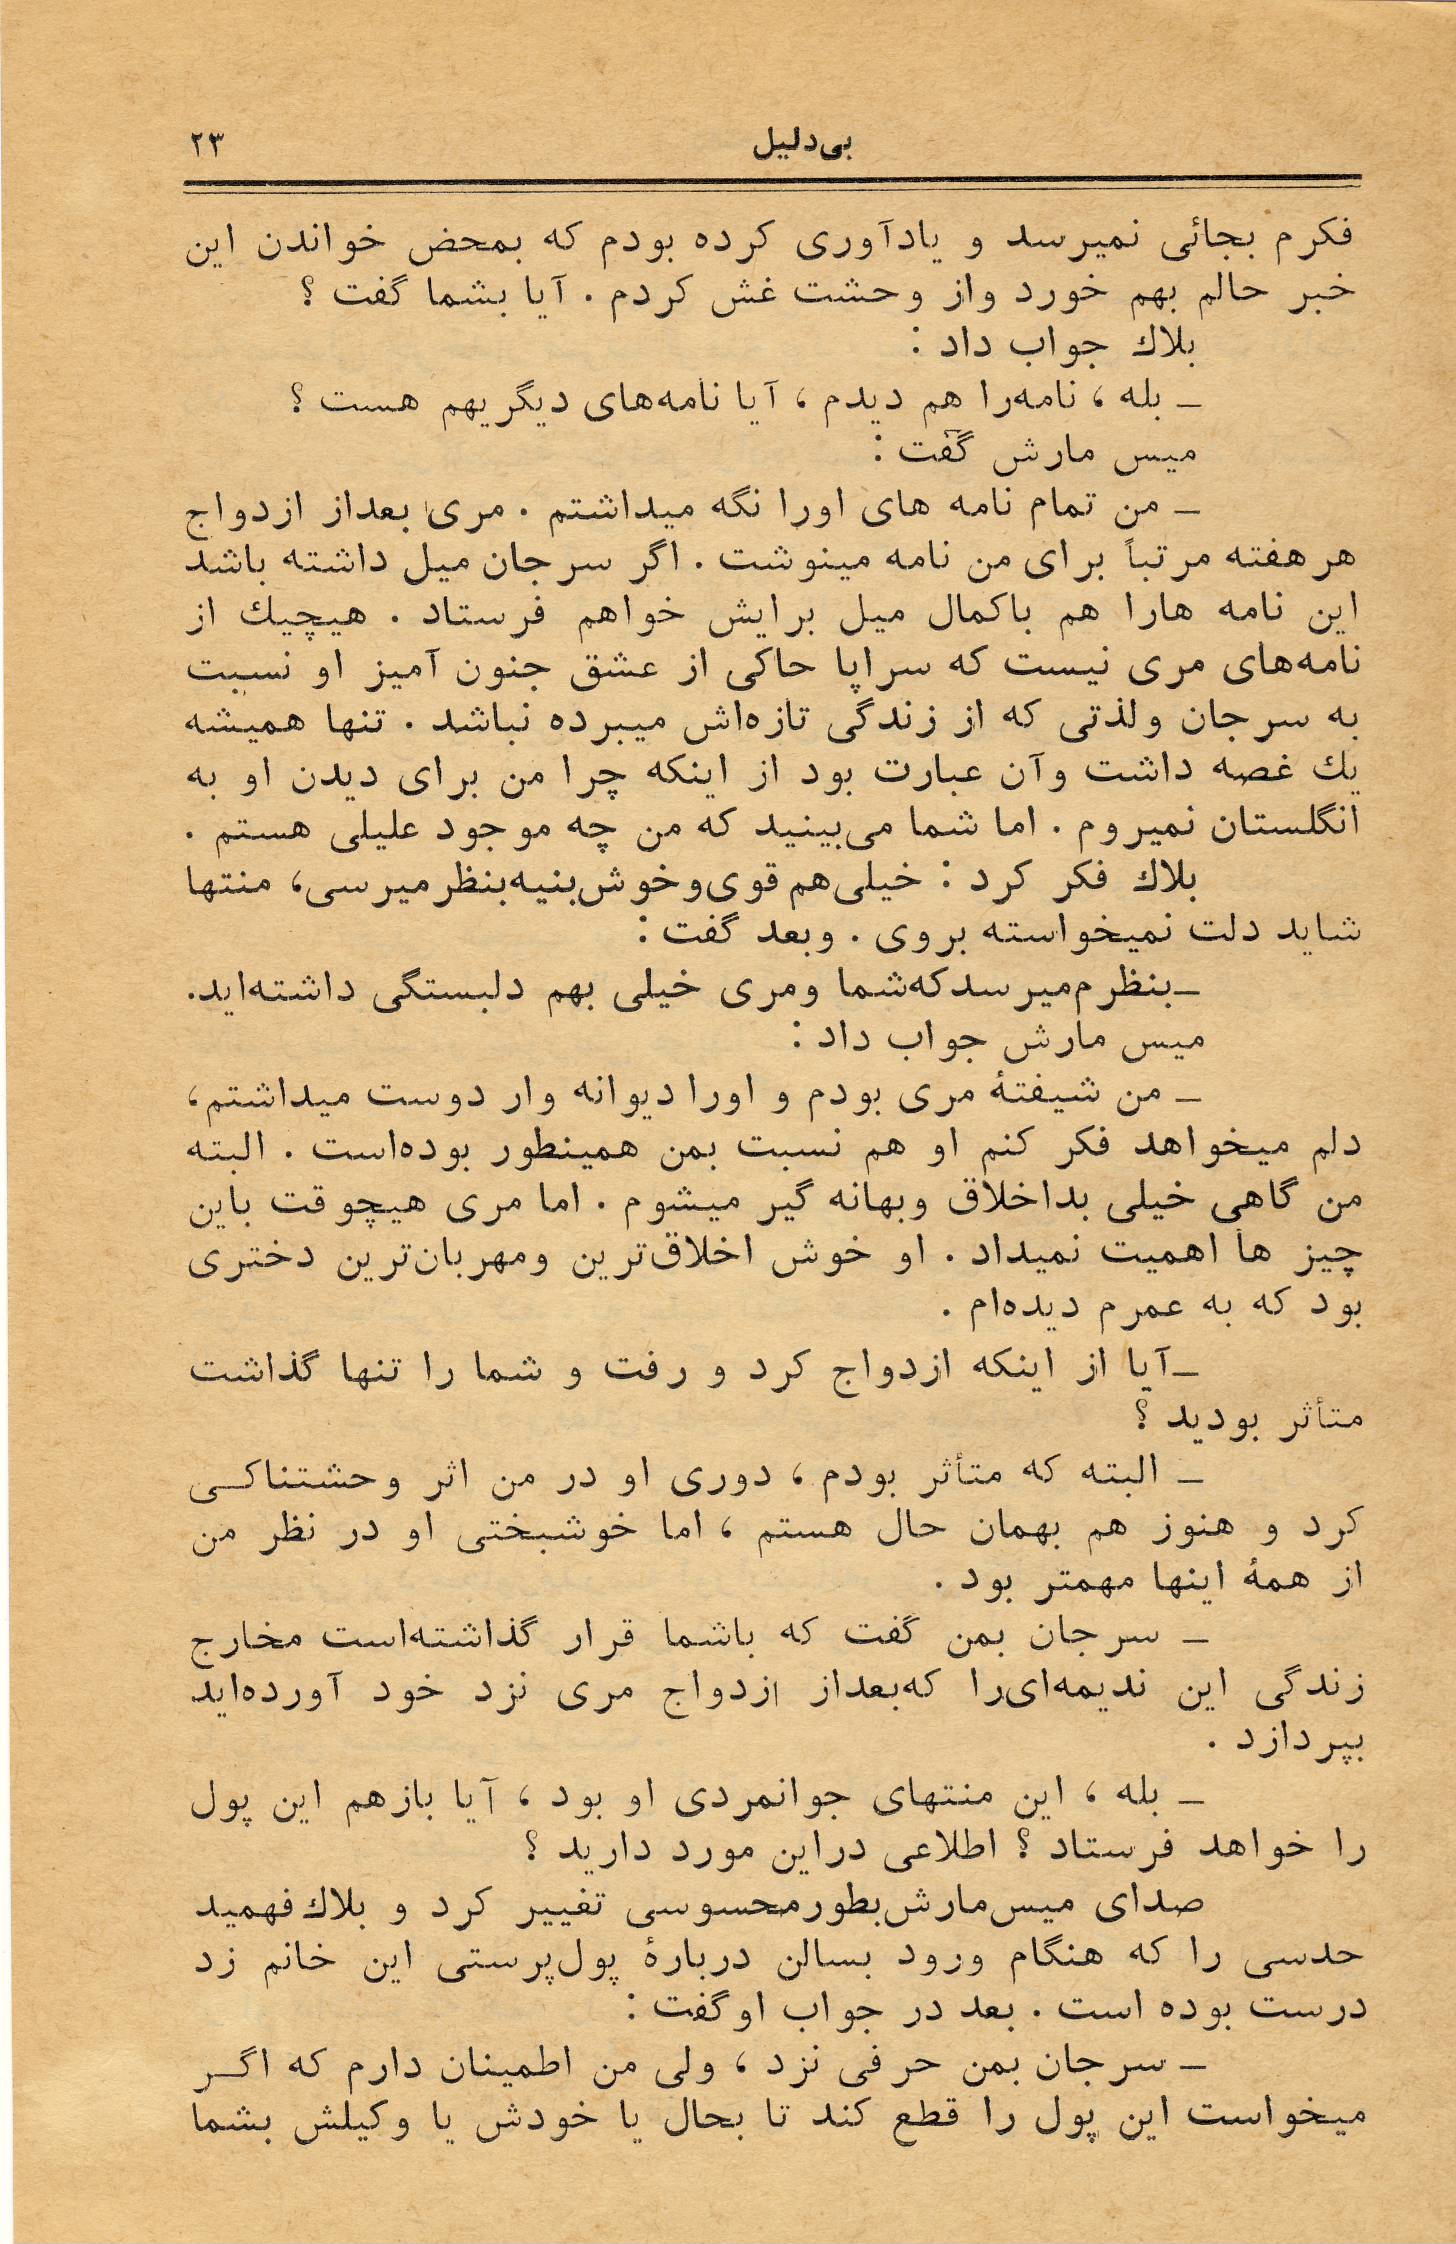 بی‌دلیل ۲۳
فکرم بجائی نمیرسد و یادآوری کرده بودم که بمحض خواندن این
خبر حالم بهم خورد واز وحشت غش کردم . آیا بشما گفت ؟
بلاك جواب داد :
ـ بله ، نامه‌را هم دیدم ، آیا نامه‌های دیگریهم هست ؟
میس مارش گفت :
ـ من تمام نامه های اورا نگه میداشتم . مری بعداز ازدواج
هرهفته مرتباً برای من نامه مینوشت . اگر سرجان میل داشته باشد
این نامه هارا هم باکمال میل برایش خواهم فرستاد . هیچیك از
نامه‌های مری نیست که سراپا حاکی از عشق جنون آمیز او نسبت
به سرجان ولذتی که از زندگی تازه‌اش میبرده نباشد . تنها همیشه
یك غصه داشت وآن عبارت بود از اینکه چرا من برای دیدن او به
انگلستان نمیروم . اما شما می‌بینید که من چه موجود علیلی هستم .
بلاك فکر کرد : خیلی‌هم قوی‌وخوش‌بنیه‌بنظرمیرسی، منتها
شاید دلت نمیخواسته بروی . وبعد گفت :
ـ بنظرم‌میرسدکه‌شما ومری خیلی بهم دلبستگی داشته‌اید.
میس مارش جواب داد :
ـ من شیفتهٔ مری بودم و اورا دیوانه وار دوست میداشتم،
دلم میخواهد فکر کنم او هم نسبت بمن همینطور بوده‌است . البته
من گاهی خیلی بداخلاق وبهانه گیر میشوم . اما مری هیچوقت باین
چیز ها اهمیت نمیداد . او خوش اخلاق‌ترین ومهربان‌ترین دختری
بود که به عمرم دیده‌ام .
ـ آیا از اینکه ازدواج کرد و رفت و شما را تنها گذاشت
متأثر بودید ؟
ـ البته که متأثر بودم ، دوری او در من اثر وحشتناکی
کرد و هنوز هم بهمان حال هستم ، اما خوشبختی او در نظر من
از همهٔ اینها مهمتر بود .
ـ سرجان بمن گفت که باشما قرار گذاشته‌است مخارج
زندگی این ندیمه‌ای‌را که‌بعداز ازدواج مری نزد خود آورده‌اید
بپردازد .
ـ بله ، این منتهای جوانمردی او بود ، آیا بازهم این پول
را خواهد فرستاد ؟ اطلاعی دراین مورد دارید ؟
صدای میس‌مارش‌بطورمحسوسی تغییر کرد و بلاك‌فهمید
حدسی را که هنگام ورود بسالن دربارهٔ پول‌پرستی این خانم زد
درست بوده است . بعد در جواب اوگفت :
ـ سرجان بمن حرفی نزد ، ولی من اطمینان دارم که اگر
میخواست این پول را قطع کند تا بحال یا خودش یا وکیلش بشما